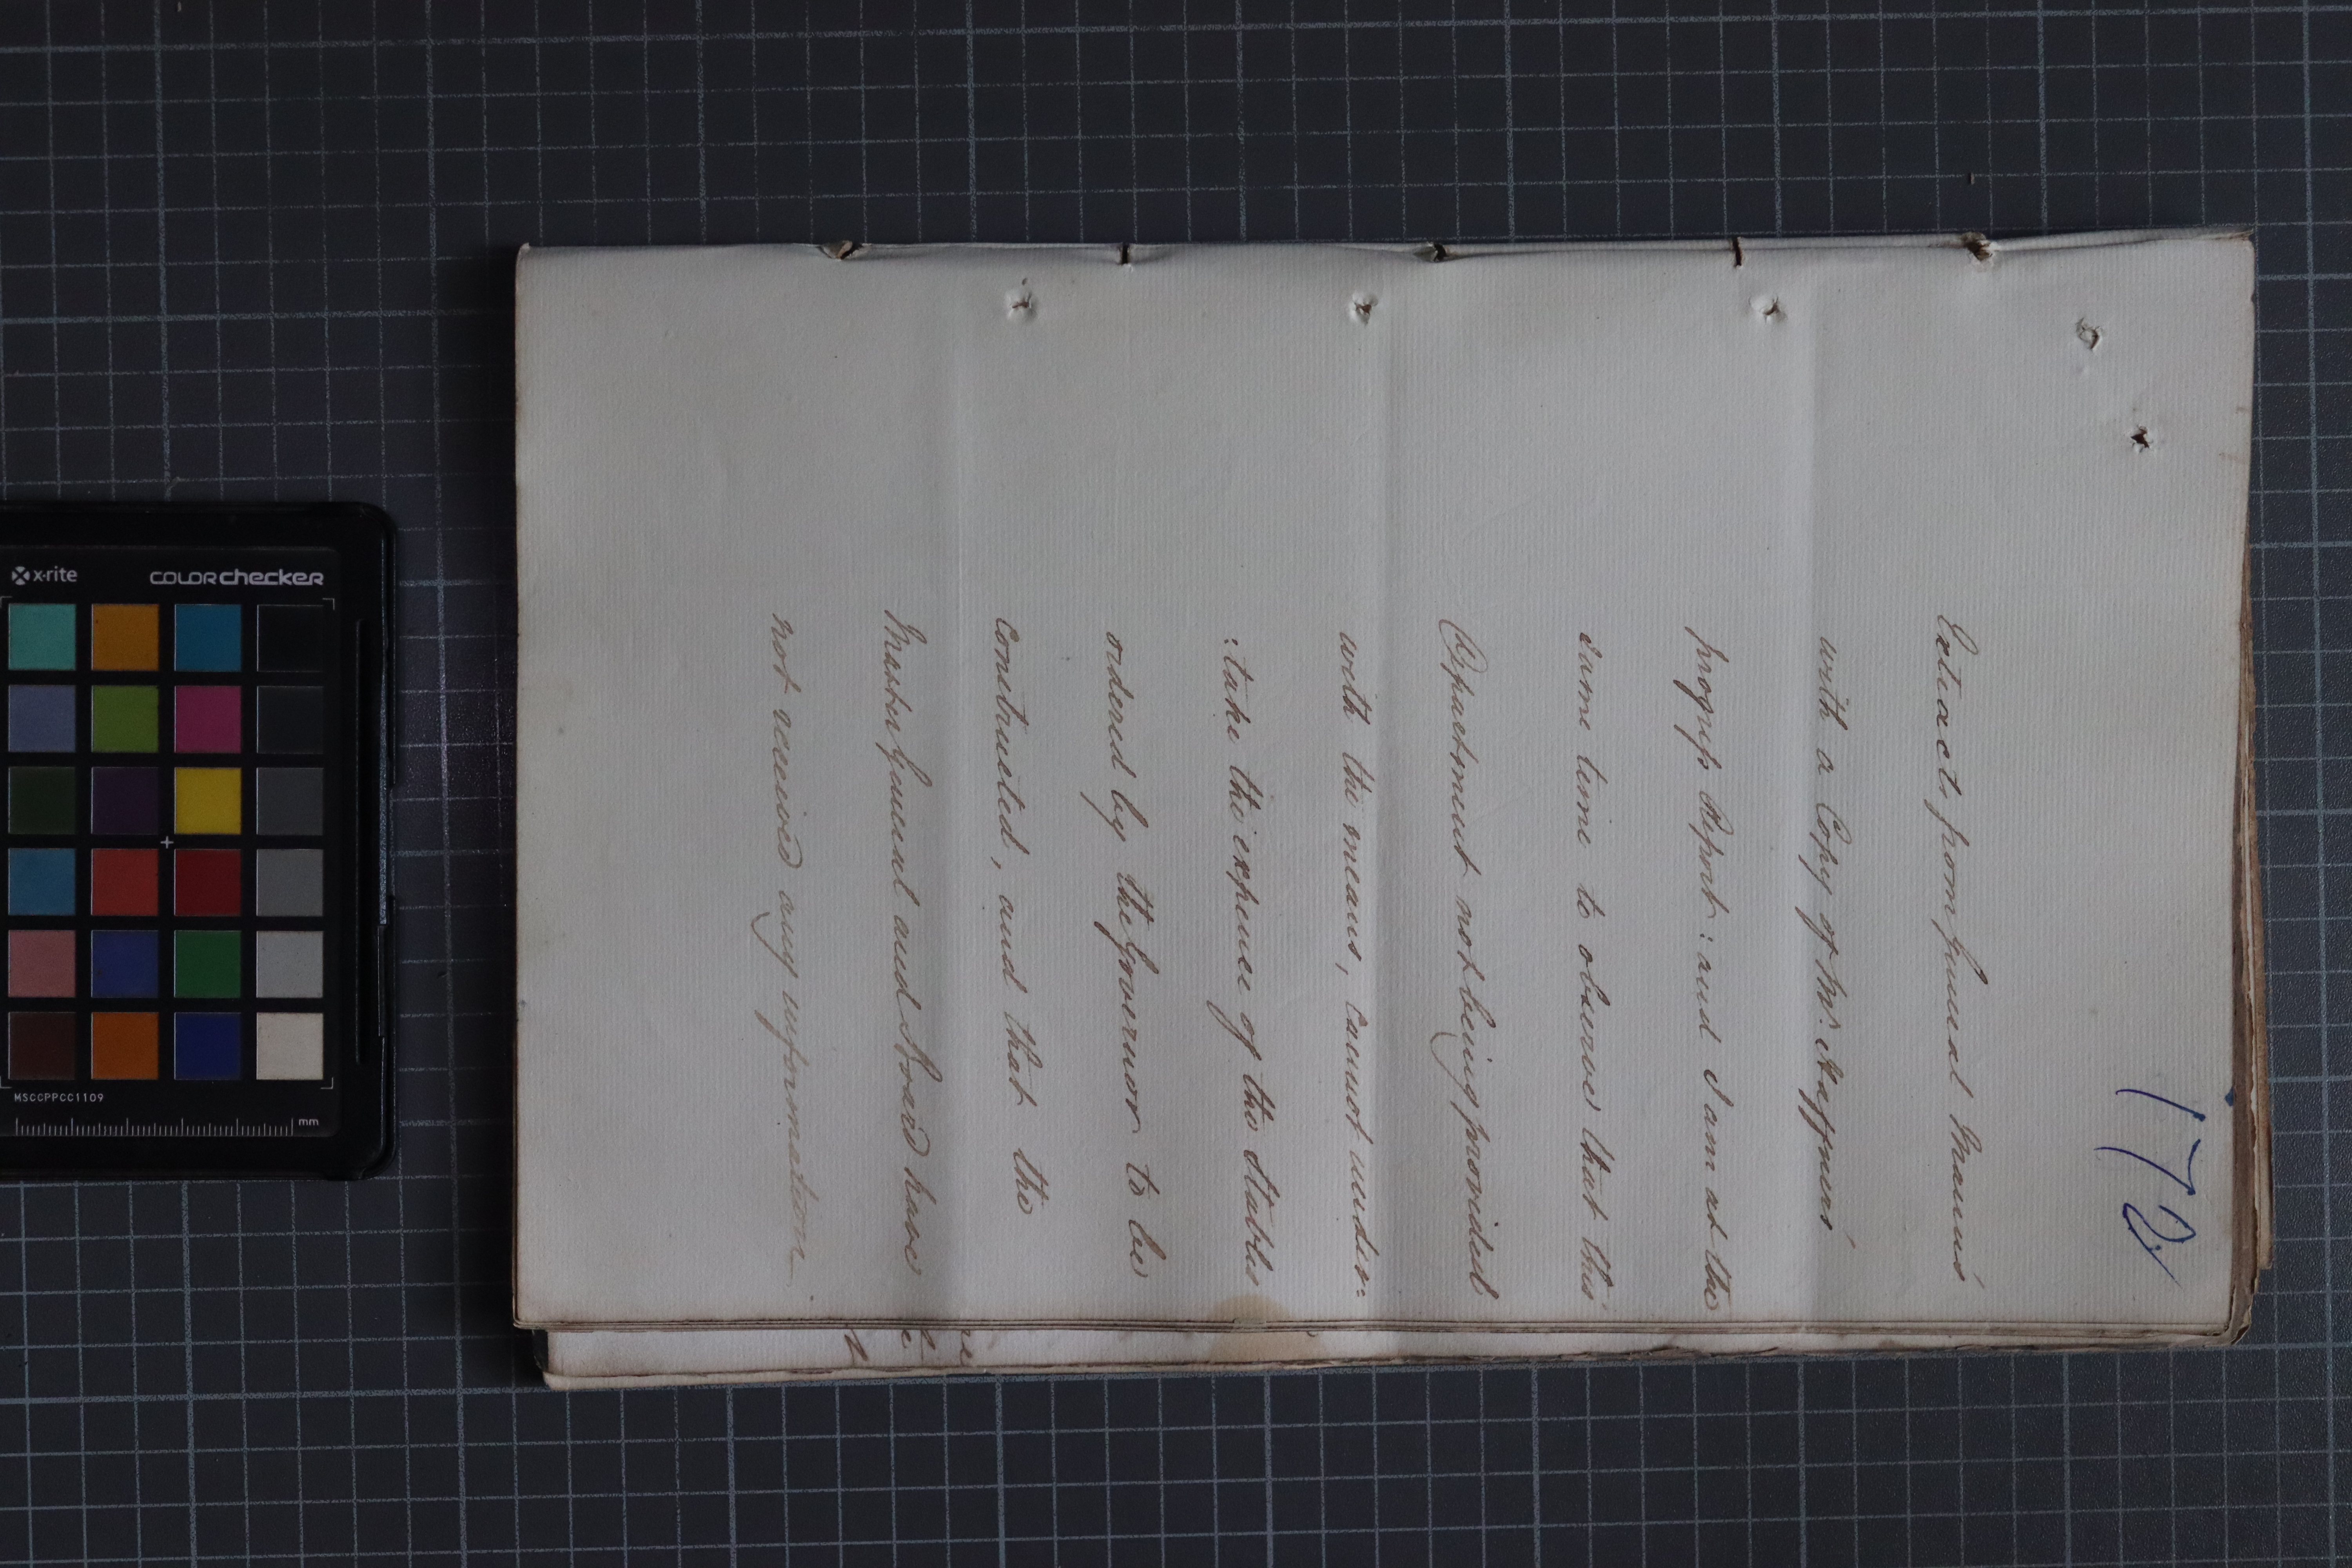 172
Extracts from General Mann's
with a Copy of Mr.
progress Report: and I am at the
same time to observe that this
Department not being provided
with the means, cannot under=
:take the expence of the Stables
ordered by the Governor to be
constructed, and that the
Master General and Board have
not received any information
x·rite
colorchecker
MSCCPPCC1109
mm